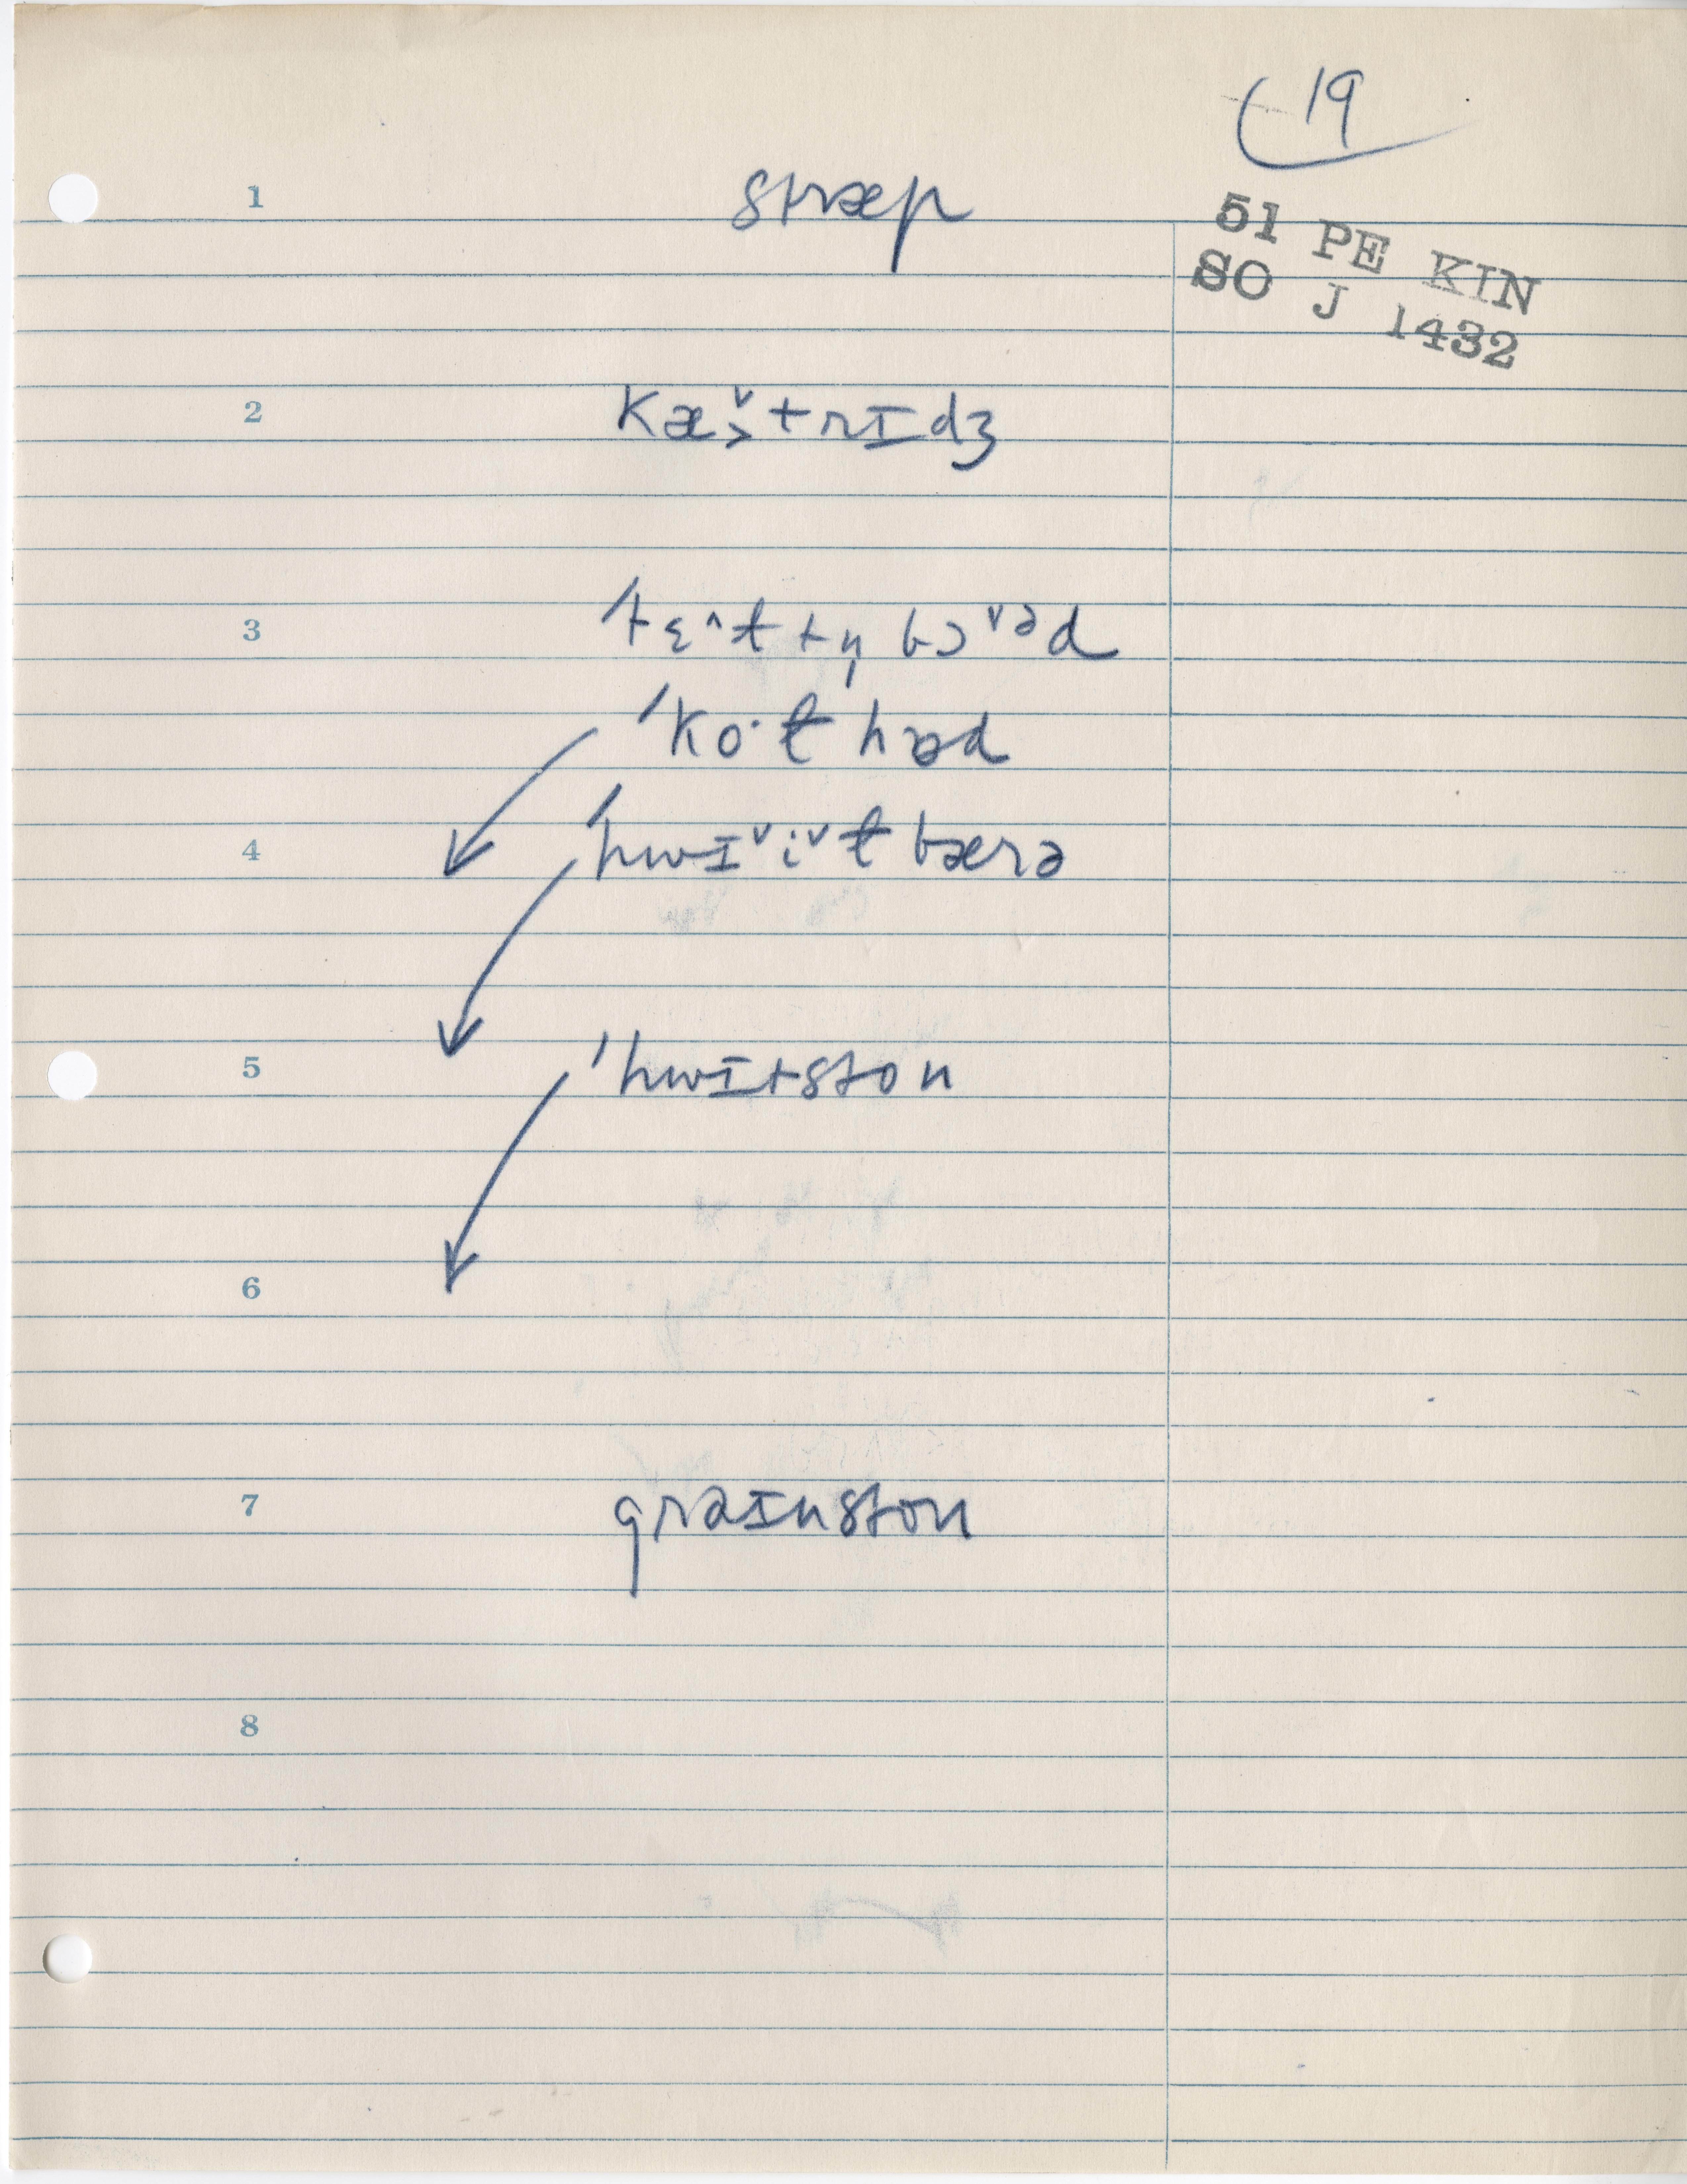 19
51 PE KIN
SO J 1432
1 stræp
2 kæ˅˃trɪdʒ
3 ˈtɛ^ɫtɪŋ bɔ˅əd
ˈko·ɫ hɒd
4 ˈhwɪ˅i˅ɫ bærə
5 ˈhwɪtston
6
7 graɪnston
8